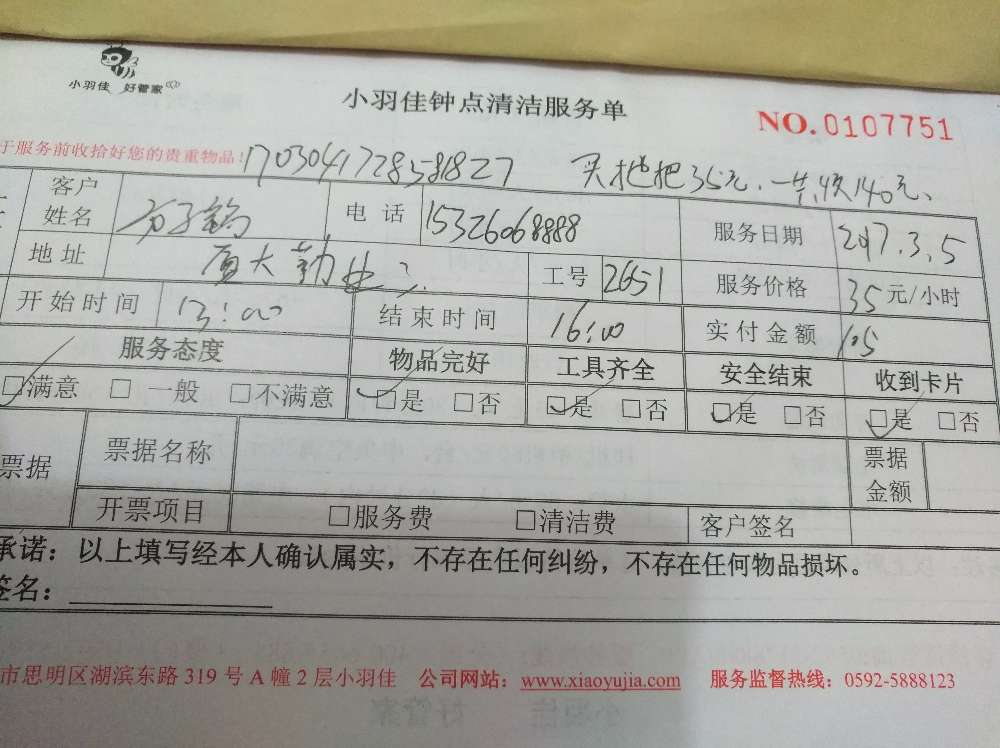 小羽佳 好管家
小羽佳钟点清洁服务单
NO.0107751
于服务前收拾好您的贵重物品!
1703041728581827 买拖把35元.一共收140元.
客户姓名 电话 15326068888 服务日期 2017.3.5
地址 厦大勤业 工号 2651 服务价格 35元/小时
开始时间 13:00 结束时间 16:00 实付金额 105
服务态度 物品完好 工具齐全 安全结束 收到卡片
□满意 □一般 □不满意 □是 □否 □是 □否 □是 □否 □是 □否
票据 票据名称 票据金额
开票项目 □服务费 □清洁费 客户签名
承诺：以上填写经本人确认属实，不存在任何纠纷，不存在任何物品损坏。
签名：
市思明区湖滨东路319号A幢2层小羽佳 公司网站：www.xiaoyujia.com 服务监督热线：0592-5888123